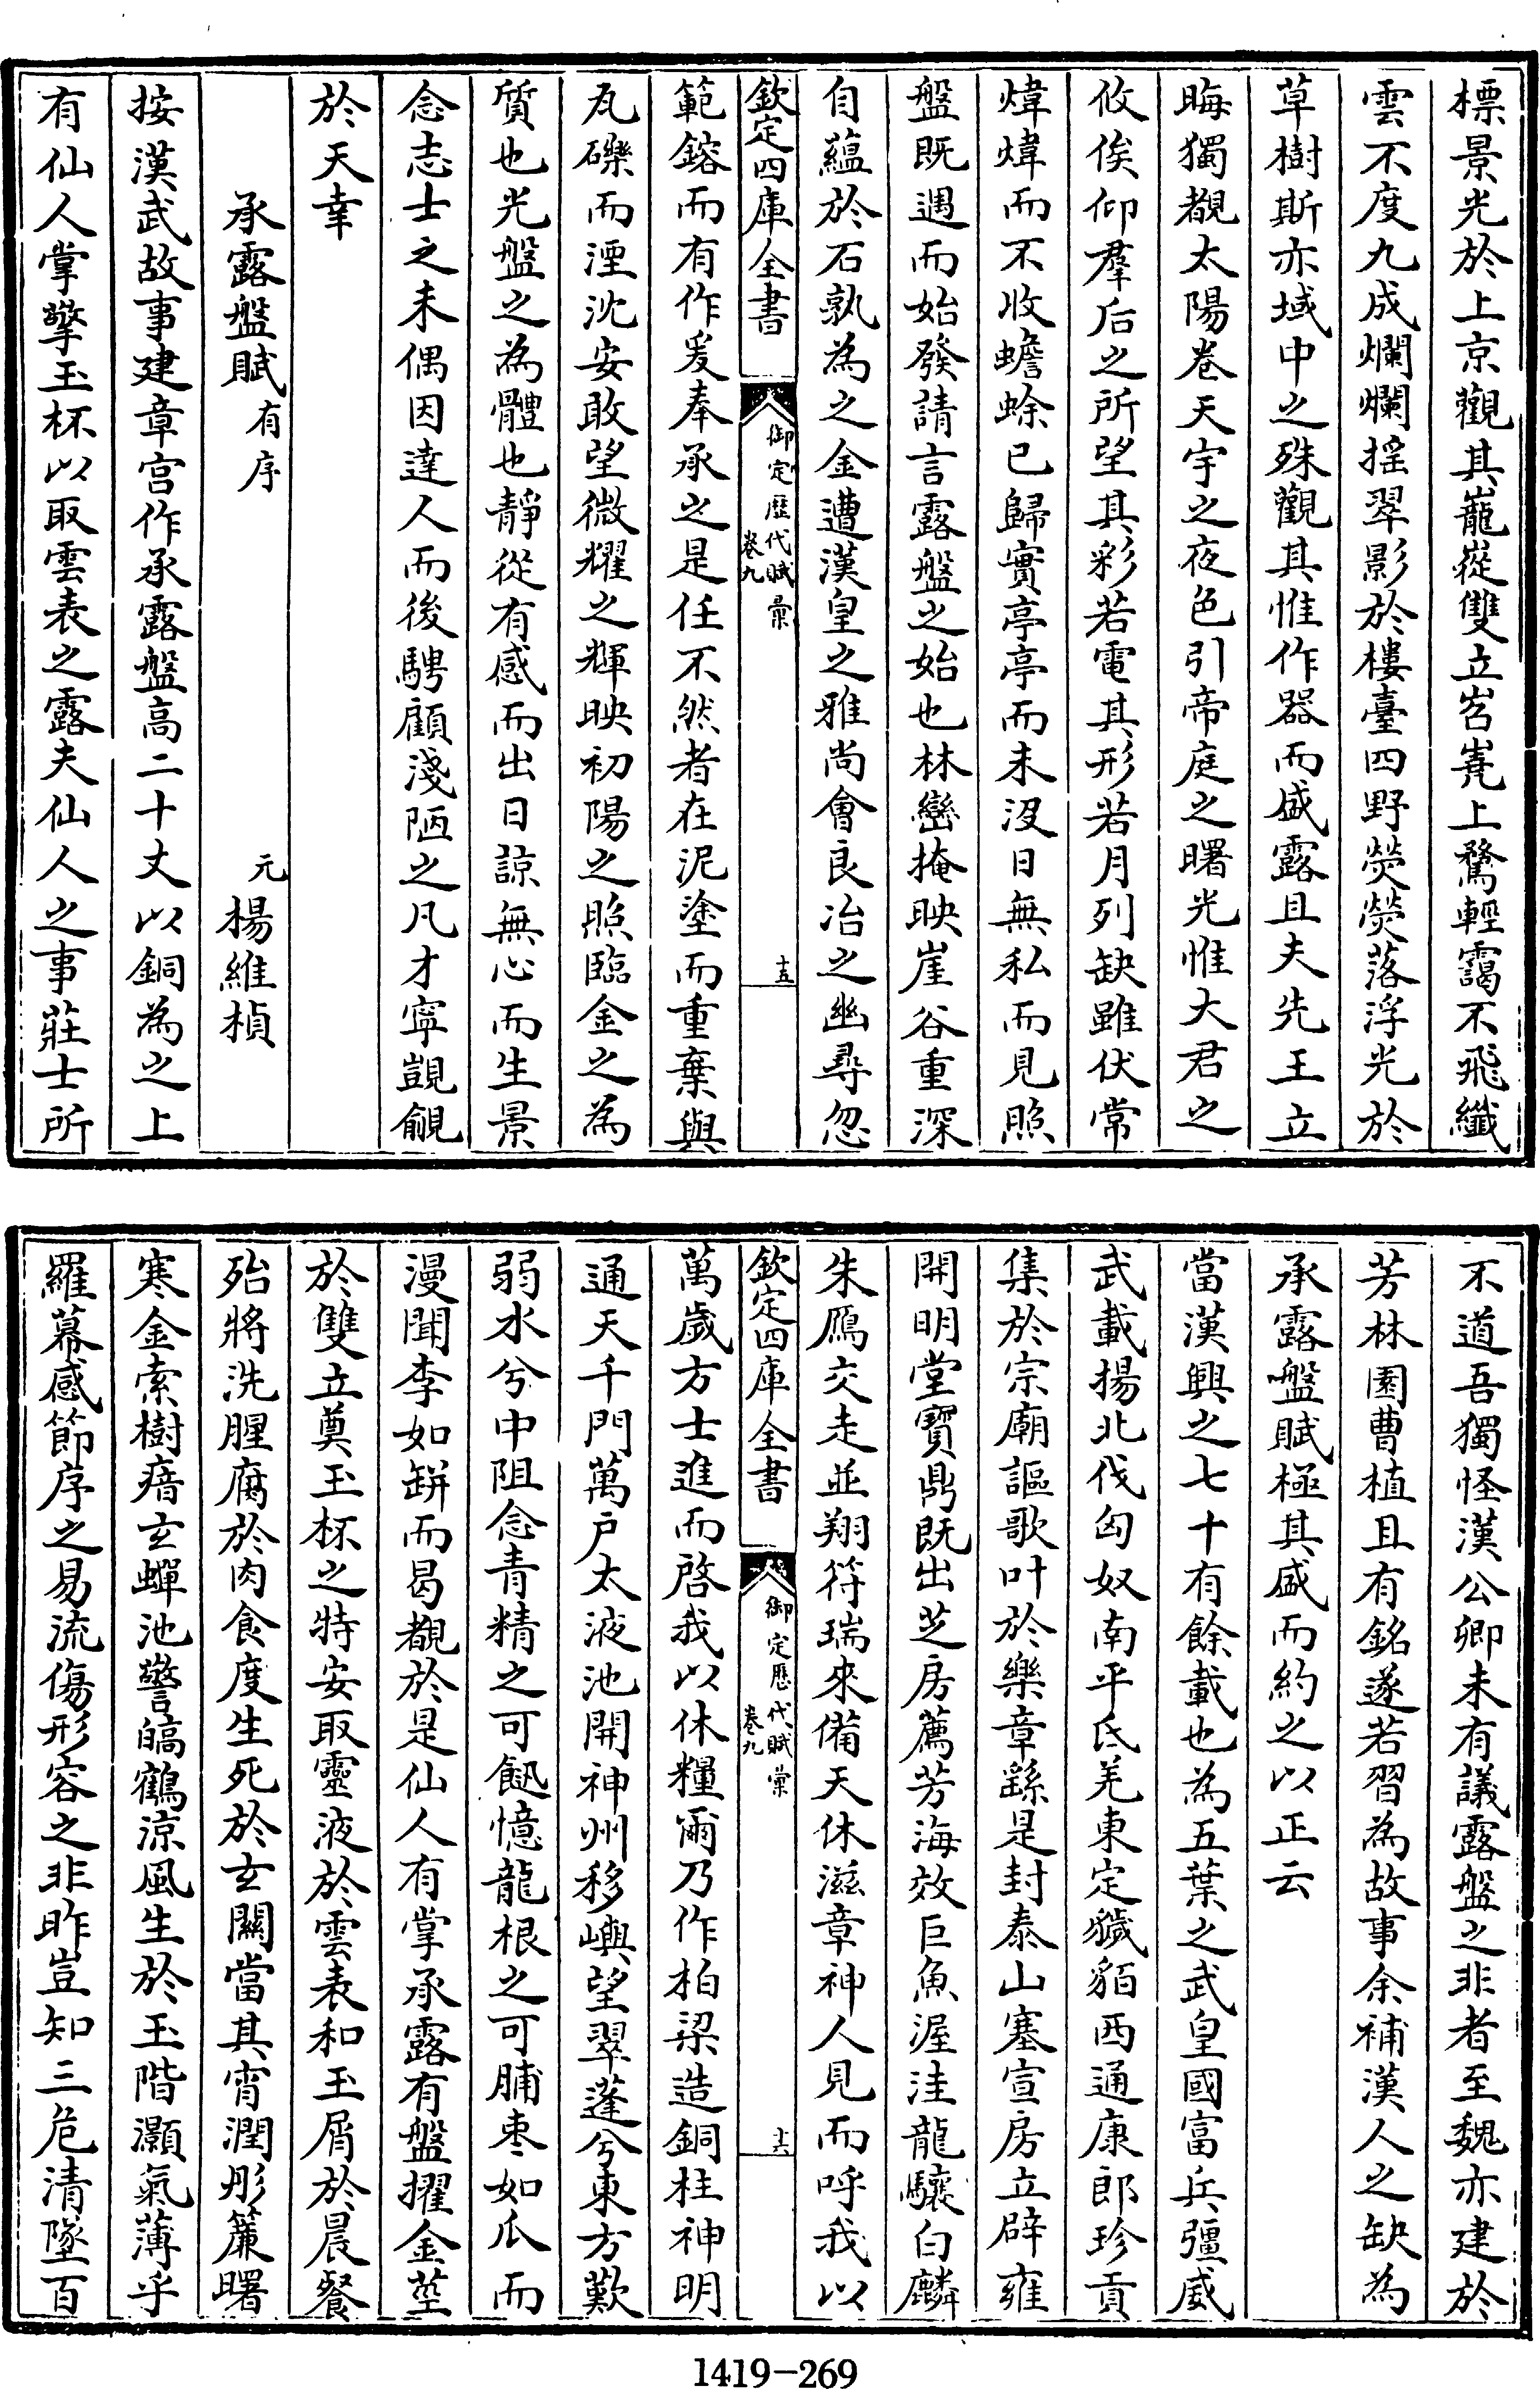 標景光於上京觀其巃嵸雙立岧嶤上騖輕靄不飛纖
雲不度九成爛爛摇翠影於樓臺四野熒熒落浮光於
草樹斯亦域中之殊觀其惟作器而盛露且夫先王立
晦獨覩太陽卷天宇之夜色引帝庭之曙光惟大君之
攸俟仰羣后之所望其彩若電其形若月列缺雖伏常
煒煒而不收蟾蜍已歸實亭亭而未沒日無私而見照
盤既遇而始發請言露盤之始也林巒掩映崖谷重深
自蘊於石孰為之金遭漢皇之雅尚會良冶之幽尋忽
欽定四庫全書
御定歷代賦彙
卷九
十五
範鎔而有作爰奉承之是任不然者在泥塗而重棄與
瓦礫而湮沈安敢望微耀之輝映初陽之照臨金之為
質也光盤之為體也靜從有感而出日諒無心而生景
念志士之未偶因達人而後騁顧淺陋之凡才寜覬覦
於天幸
承露盤賦有序
元
楊維楨
按漢武故事建章宫作承露盤高二十丈以銅為之上
有仙人掌擎玉杯以取雲表之露夫仙人之事莊士所
不道吾獨怪漢公卿未有議露盤之非者至魏亦建於
芳林園曹植且有銘遂若習為故事余補漢人之缺為
承露盤賦極其盛而約之以正云
當漢興之七十有餘載也為五葉之武皇國富兵彊威
武載揚北伐匈奴南平氐羌東定獩貊西通康郎珍貢
集於宗廟謳歌叶於樂章繇是封泰山塞宣房立辟雍
開明堂寳鼎既出芝房薦芳海效巨魚渥洼龍驤白麟
朱鴈交走並翔符瑞來備天休滋章神人見而呼我以
欽定四庫全書
御定歷代賦彙
卷九
十六
萬歲方士進而啓我以休糧爾乃作柏梁造銅柱神明
通天千門萬户太液池開神州移嶼望翠蓬兮東方歎
弱水兮中阻念青精之可䭇憶龍根之可脯棗如瓜而
漫聞李如缾而曷覩於是仙人有掌承露有盤擢金莖
於雙立奠玉杯之特安取靈液於雲表和玉屑於晨餐
殆將洗腥腐於肉食度生死於玄關當其宵潤彤簾曙
寒金索樹瘖玄蟬池警皜鶴涼風生於玉階灝氣薄乎
羅幕感節序之易流傷形容之非昨豈知三危清墜百
1419-269